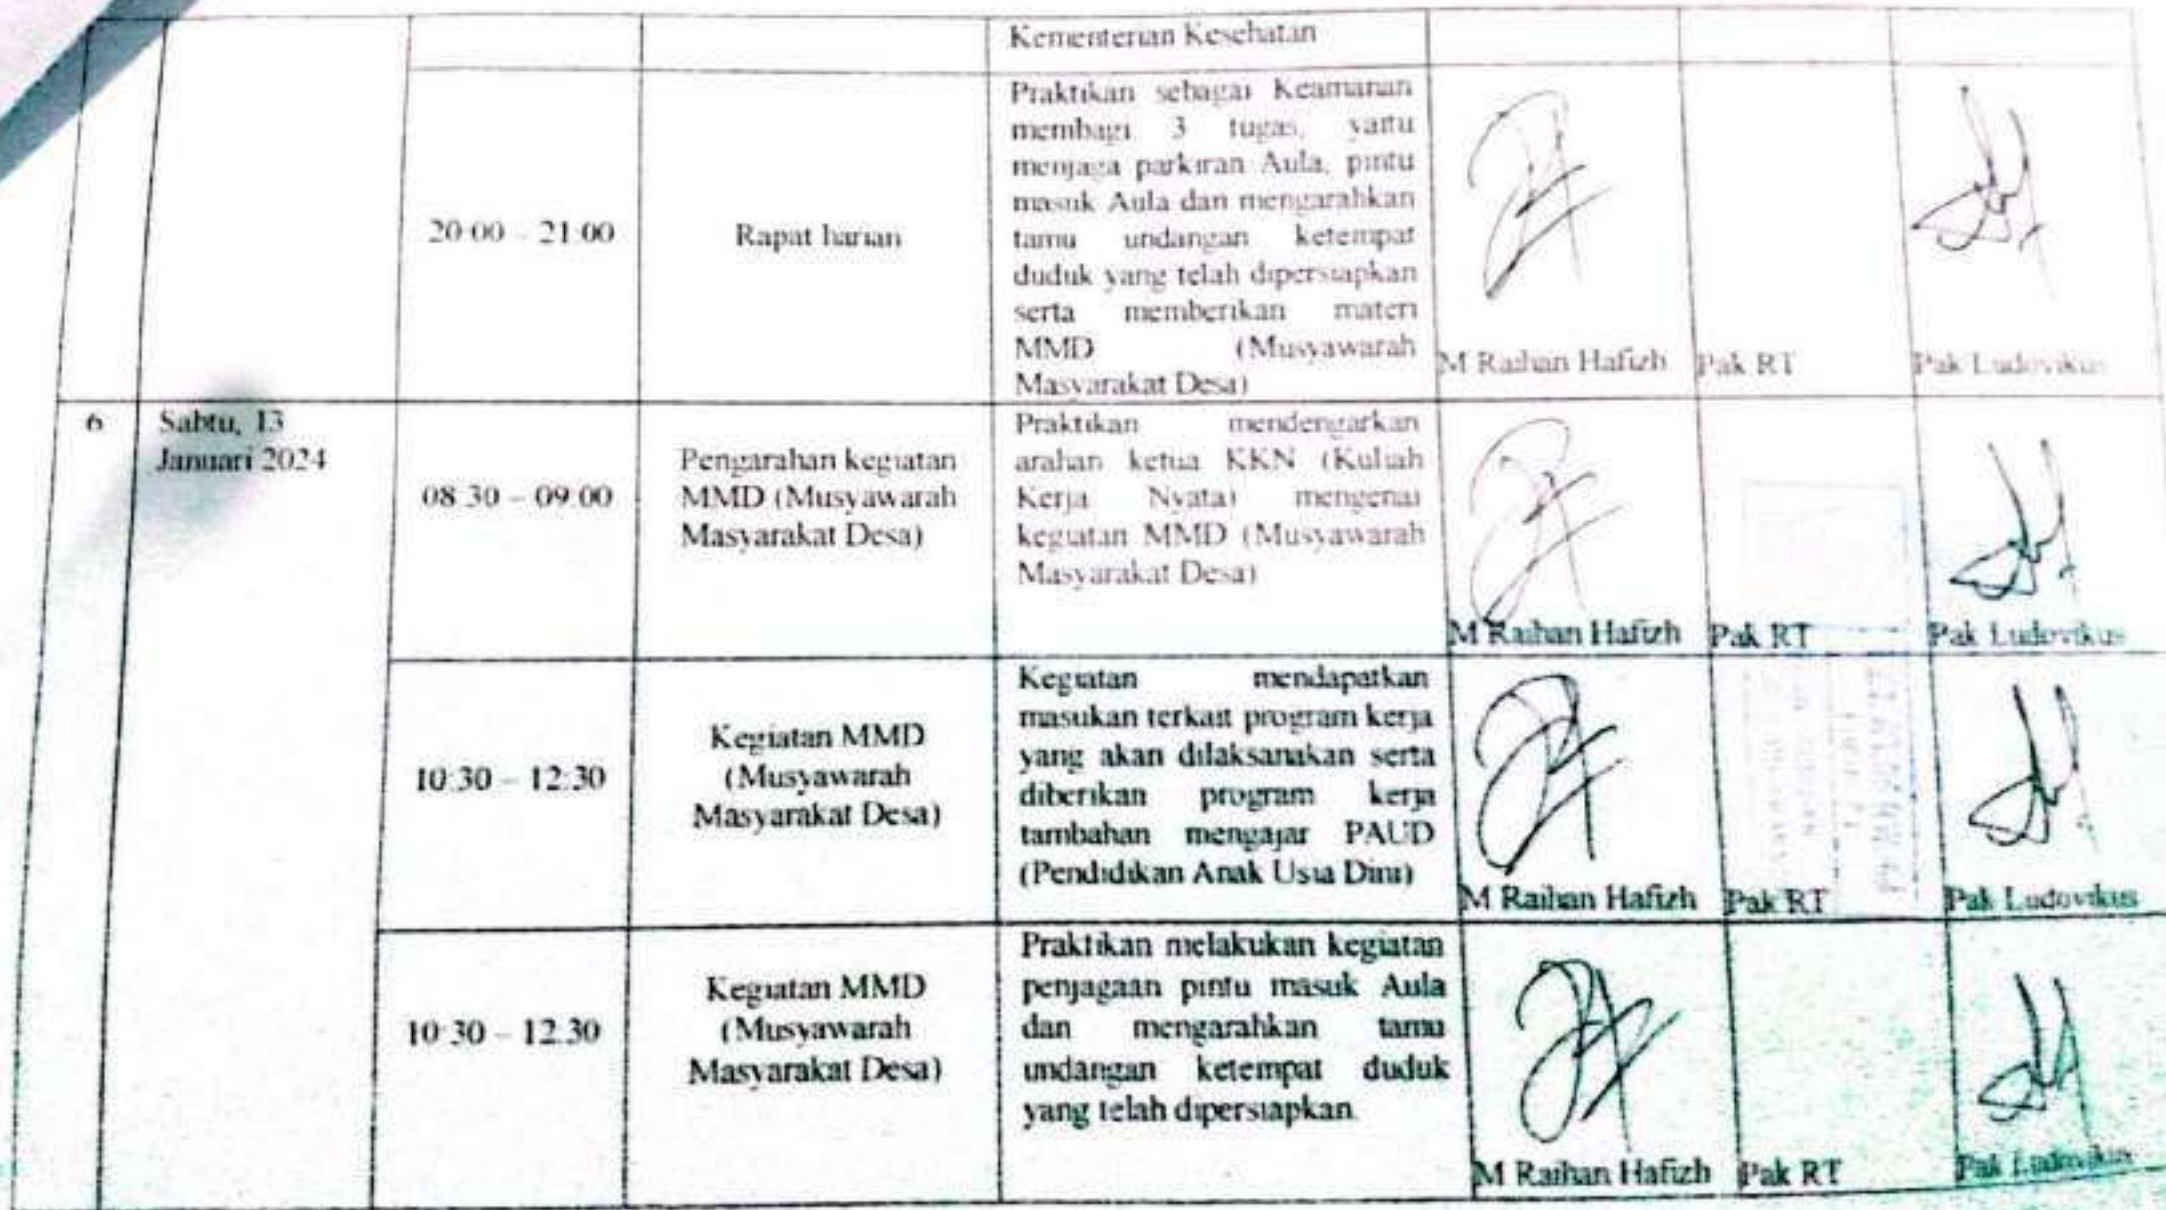 Kementerian Kesehatan
20:00 - 21:00
Rapat harian
Praktikan sebagai Keamanan
membagi 3 tugas, yaitu
menjaga parkiran Aula, pintu
masuk Aula dan mengarahkan
tamu undangan ketempat
duduk yang telah dipersiapkan
serta memberikan materi
MMD (Musyawarah
Masyarakat Desa)
M Raihan Hafizh
Pak RT
Pak Ludovikus
6
Sabtu, 13
Januari 2024
08:30 – 09:00
Pengarahan kegiatan
MMD (Musyawarah
Masyarakat Desa)
Praktikan mendengarkan
arahan ketua KKN (Kuliah
Kerja Nyata) mengenai
kegiatan MMD (Musyawarah
Masyarakat Desa)
M Raihan Hafizh
Pak RT
Pak Ludovikus
10:30 – 12:30
Kegiatan MMD
(Musyawarah
Masyarakat Desa)
Kegiatan mendapatkan
masukan terkait program kerja
yang akan dilaksanakan serta
diberikan program kerja
tambahan mengajar PAUD
(Pendidikan Anak Usia Dini)
M Raihan Hafizh
Pak RT
Pak Ludovikus
10:30 – 12:30
Kegiatan MMD
(Musyawarah
Masyarakat Desa)
Praktikan melakukan kegiatan
penjagaan pintu masuk Aula
dan mengarahkan tamu
undangan ketempat duduk
yang telah dipersiapkan.
M Raihan Hafizh
Pak RT
Pak Ludovikus